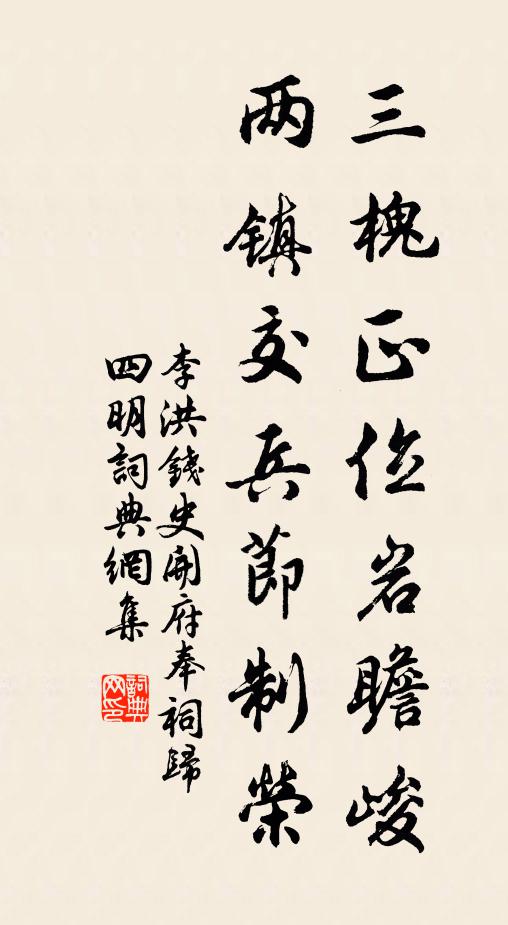 三槐正位岩瞻峻
两镇交兵節制榮
李洪錢史開府奉祠歸
四明詞典網集
詞典网印